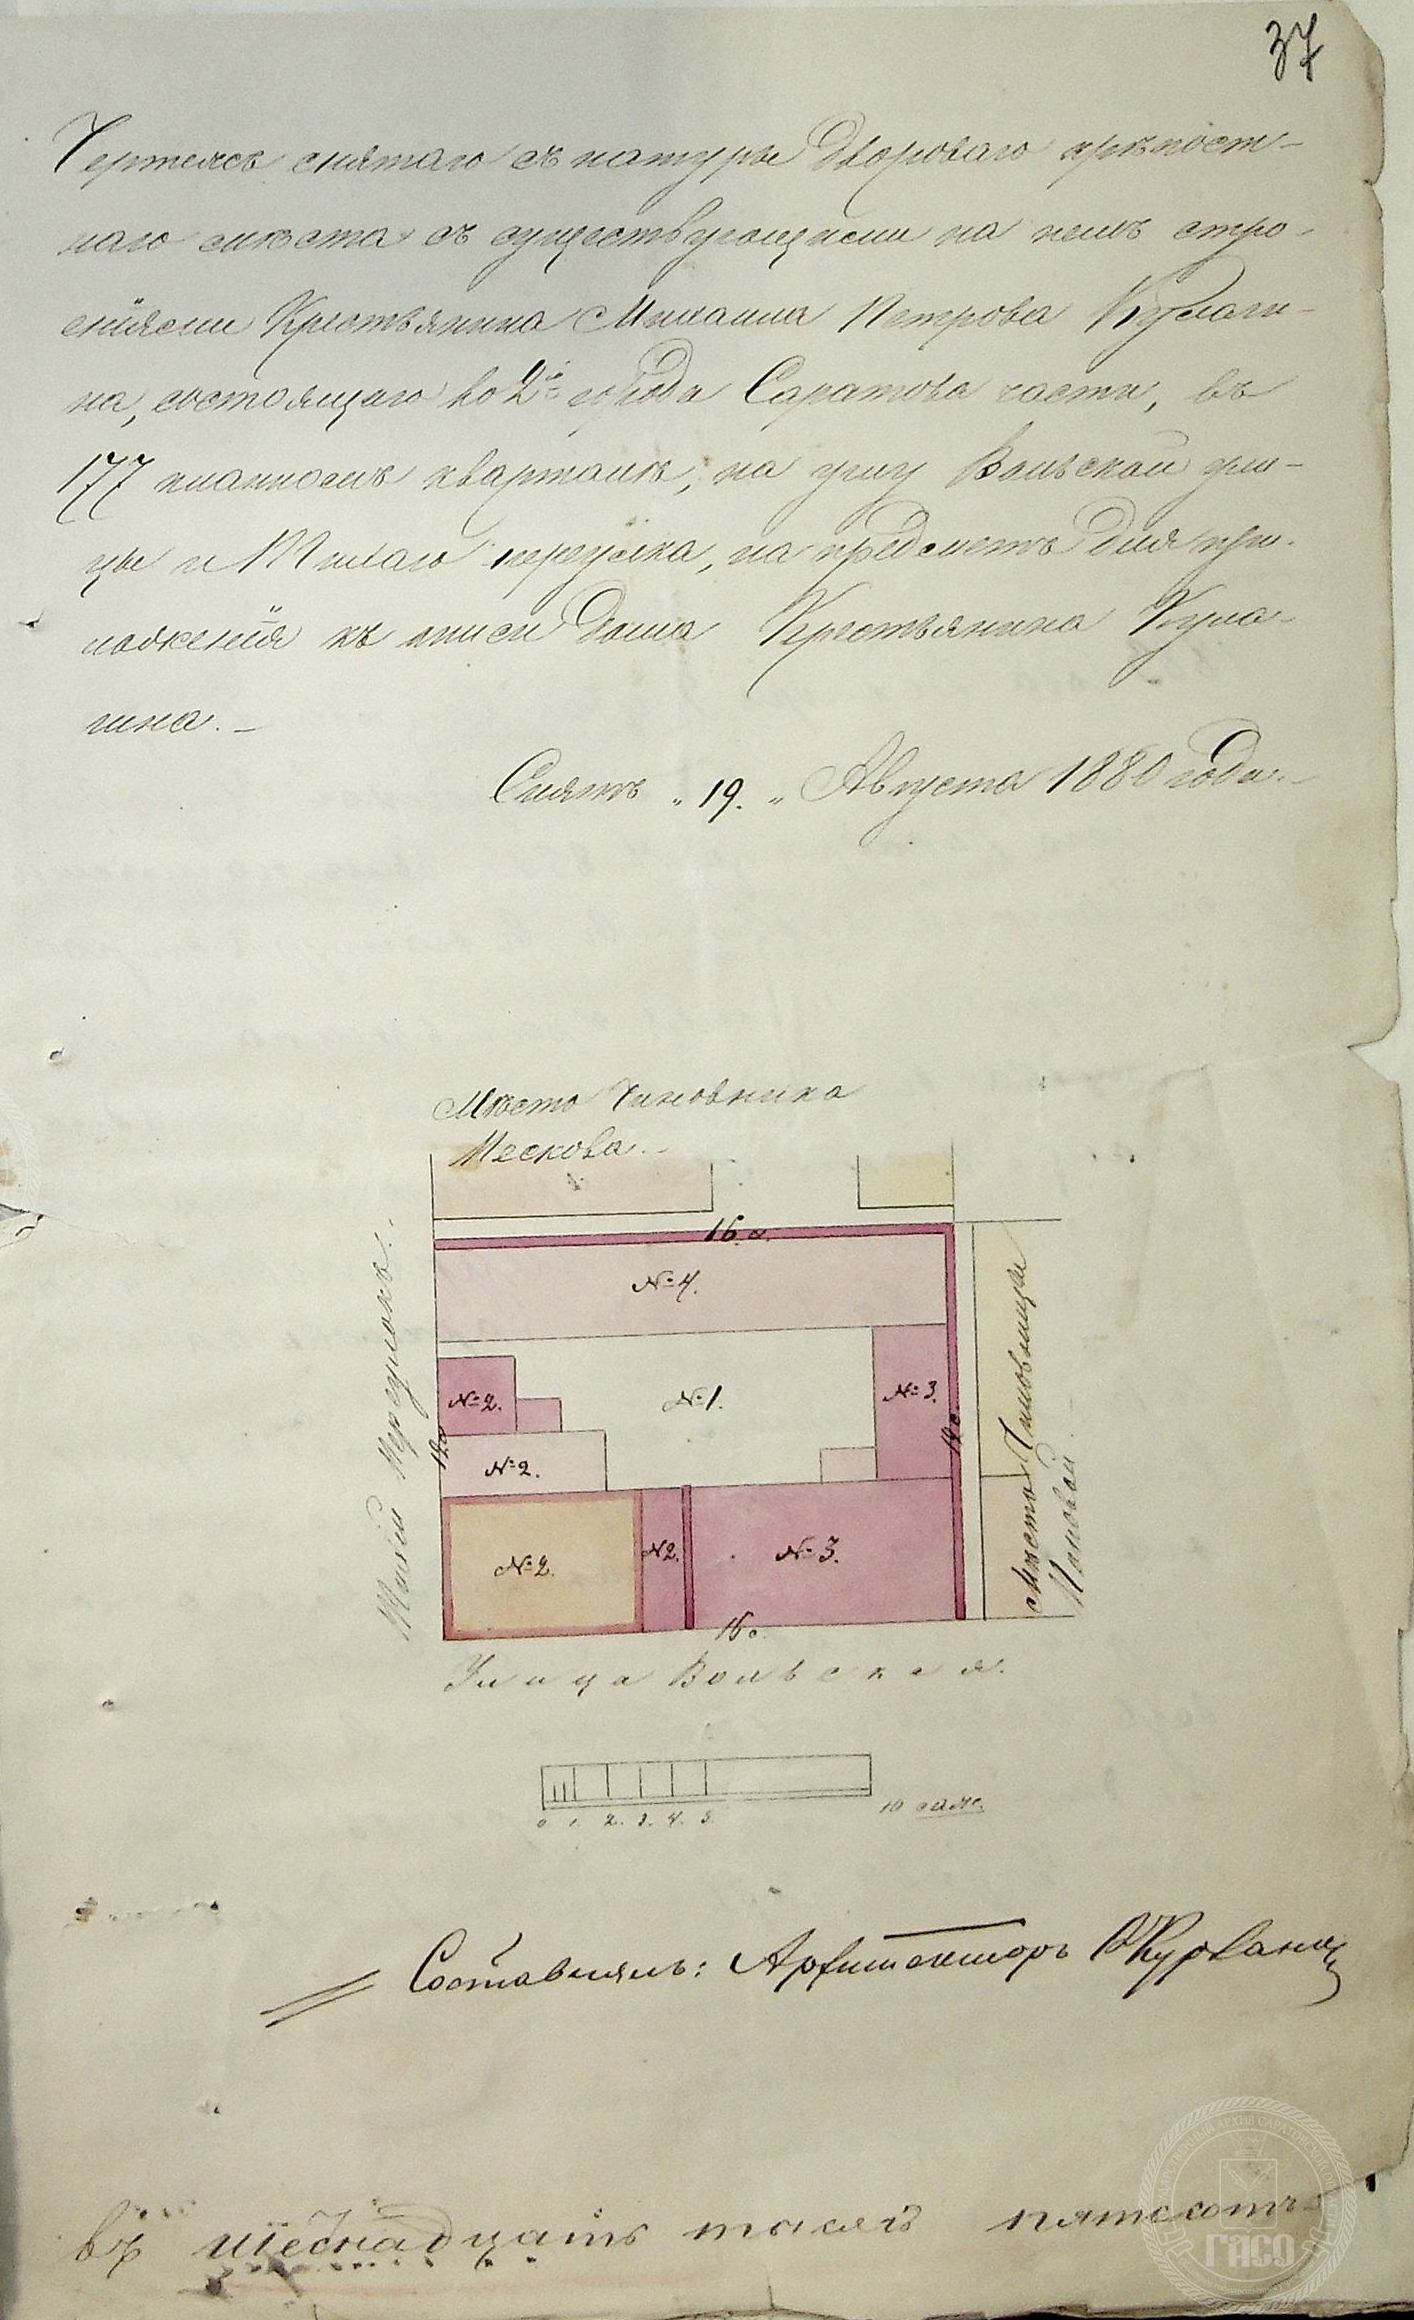 37
Чертежъ снятаго съ натуры двороваго крѣпост-
наго мѣста съ существующими на немъ стро-
еніями Крестьянина Михаила Петрова Кулаги-
на, состоящаго во 2й города Саратова части, въ
177 планномъ кварталѣ, на углу Вольской ули-
цы и Тихаго переулка, на предметъ для при-
ложенія къ описи дома Крестьянина Кула-
гина.-
Снятъ „19.„ Августа 1880 года.-
Мѣсто Чиновника
Пескова.-
16.с.
№4.
№2.
№1.
№3.
№2.
№2.
№2.
№3.
16 с.
Тихій Переулокъ.
Мѣсто Чиновницы
Поповой
Улица Вольская.
0 1. 2. 3. 4. 5. 10 саж.
Составлялъ: Архитекторъ
въ шестнадцать тысячъ пятьсотъ
ГАСО